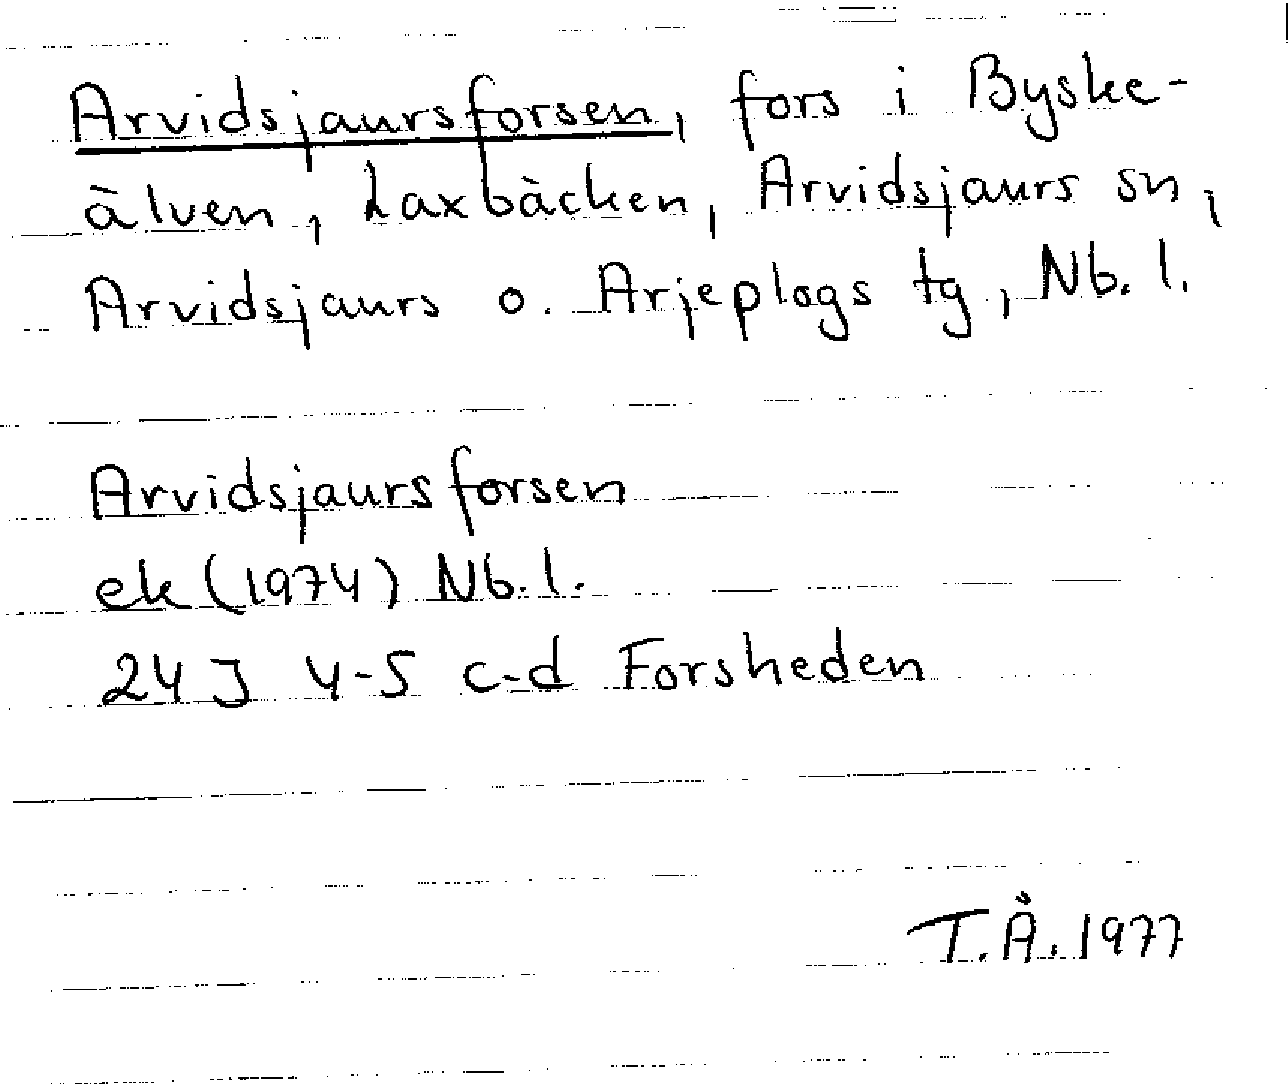 Arvidsjaursforsen, fors i Byske-
älven, Laxbäcken, Arvidsjaurs sn,
Arvidsjaurs o. Arjeplogs tg, Nb. l.
Arvidsjaursforsen
ek (1974) Nb. l.
24 J 4-5 c-d Forsheden
T.Å. 1977